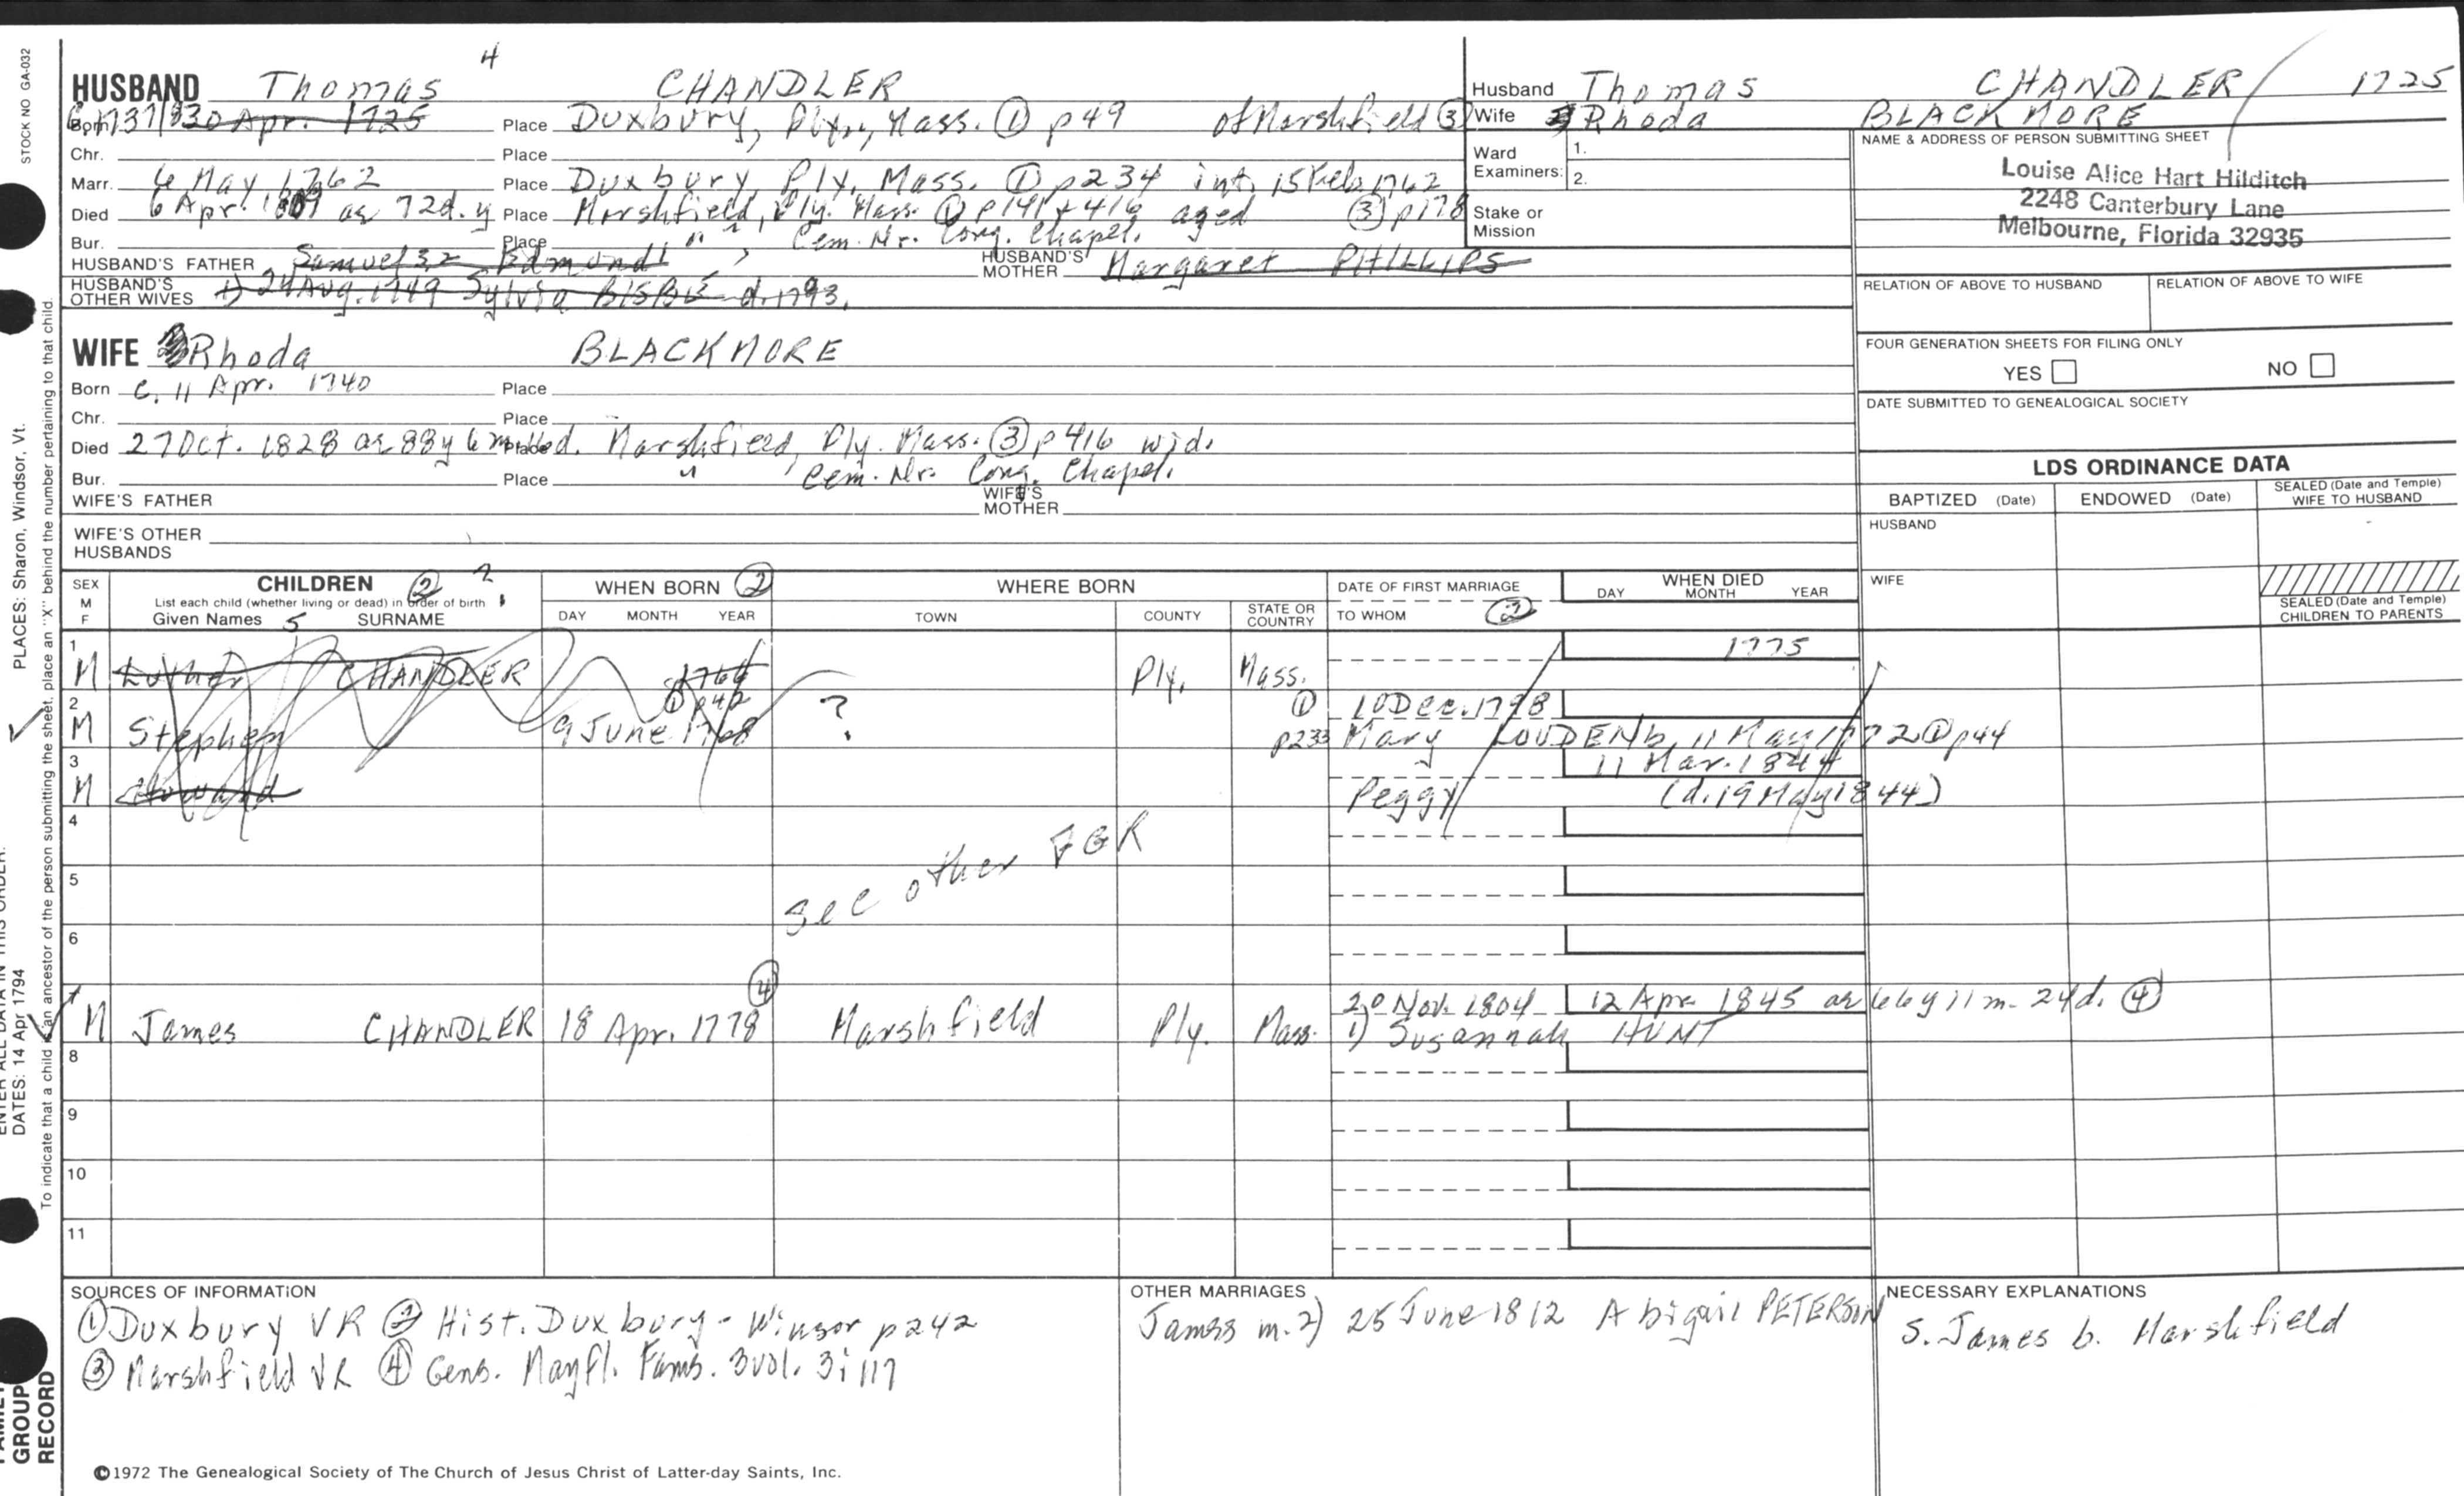 STOCK NO GA-032
4
HUSBAND Thomas CHANDLER
Born c. 1737/8 30 Apr. 1725 Place Duxbury, Ply., Mass. ① p49 of Marshfield ③
Chr. Place
Marr. 6 May 1762 Place Duxbury, Ply. Mass. ① p234 int. 15 Feb 1762
Died 6 Apr. 1809 ae 72d. y Place Marshfield, Ply. Mass. ① p141 & 416 aged ③ p178
Bur. Place " " , Cem. Nr. Cong. Chapel.
HUSBAND'S FATHER Samuel 3,2 Edmund1 HUSBAND'S MOTHER Margaret PHILLIPS
HUSBAND'S OTHER WIVES 1) 24 Aug. 1749 Sylvia BISBE d. 1793.
WIFE Rhoda BLACKMORE
Born c. 11 Apr. 1740 Place
Chr. Place
Died 27 Oct. 1828 ae 88y 6m Place Marshfield, Ply. Mass. ③ p416 wid.
Bur. Place " Cem. Nr. Cong. Chapel.
WIFE'S FATHER WIFE'S MOTHER
WIFE'S OTHER HUSBANDS
Husband Thomas CHANDLER 1725
Wife Rhoda BLACKMORE
Ward Examiners: 1.
2.
Stake or Mission
NAME & ADDRESS OF PERSON SUBMITTING SHEET
Louise Alice Hart Hilditch
2248 Canterbury Lane
Melbourne, Florida 32935
RELATION OF ABOVE TO HUSBAND RELATION OF ABOVE TO WIFE
FOUR GENERATION SHEETS FOR FILING ONLY
YES NO
DATE SUBMITTED TO GENEALOGICAL SOCIETY
LDS ORDINANCE DATA
BAPTIZED (Date) ENDOWED (Date) SEALED (Date and Temple) WIFE TO HUSBAND
HUSBAND
WIFE
SEALED (Date and Temple) CHILDREN TO PARENTS
SEX M F CHILDREN ② ? WHEN BORN ② WHERE BORN DATE OF FIRST MARRIAGE WHEN DIED
List each child (whether living or dead) in order of birth
Given Names 5 SURNAME DAY MONTH YEAR TOWN COUNTY STATE OR COUNTRY TO WHOM ② DAY MONTH YEAR
1 M Luther CHANDLER 1766 Ply. Mass. 1775
2 M Stephen ① p42 9 June 1768 ? ① p233 10 Dec. 1798 Mary LOUDEN b. 11 May 1772 ① p44
3 M Howard Peggy 11 Mar. 1844 (d. 19 May 1844)
4
see other FGR
5
6
M James CHANDLER 18 Apr. 1778 ④ Marshfield Ply. Mass. 20 Nov. 1804 1) Susannah HUNT 12 Apr 1845 ae 66y 11m. 24d. ④
8
9
10
11
SOURCES OF INFORMATION
① Duxbury VR ② Hist. Duxbury - Winsor p242
③ Marshfield VR ④ Gens. Mayfl. Fams. 3vol. 3:117
OTHER MARRIAGES
James m. 2) 25 June 1812 Abigail PETERSON
NECESSARY EXPLANATIONS
S. James b. Marshfield
©1972 The Genealogical Society of The Church of Jesus Christ of Latter-day Saints, Inc.
PLACES: Sharon, Windsor, Vt.
ENTER ALL DATA IN THIS ORDER:
DATES: 14 Apr 1794
To indicate that a child is an ancestor of the person submitting the sheet, place an "X" behind the number pertaining to that child.
FAMILY GROUP RECORD